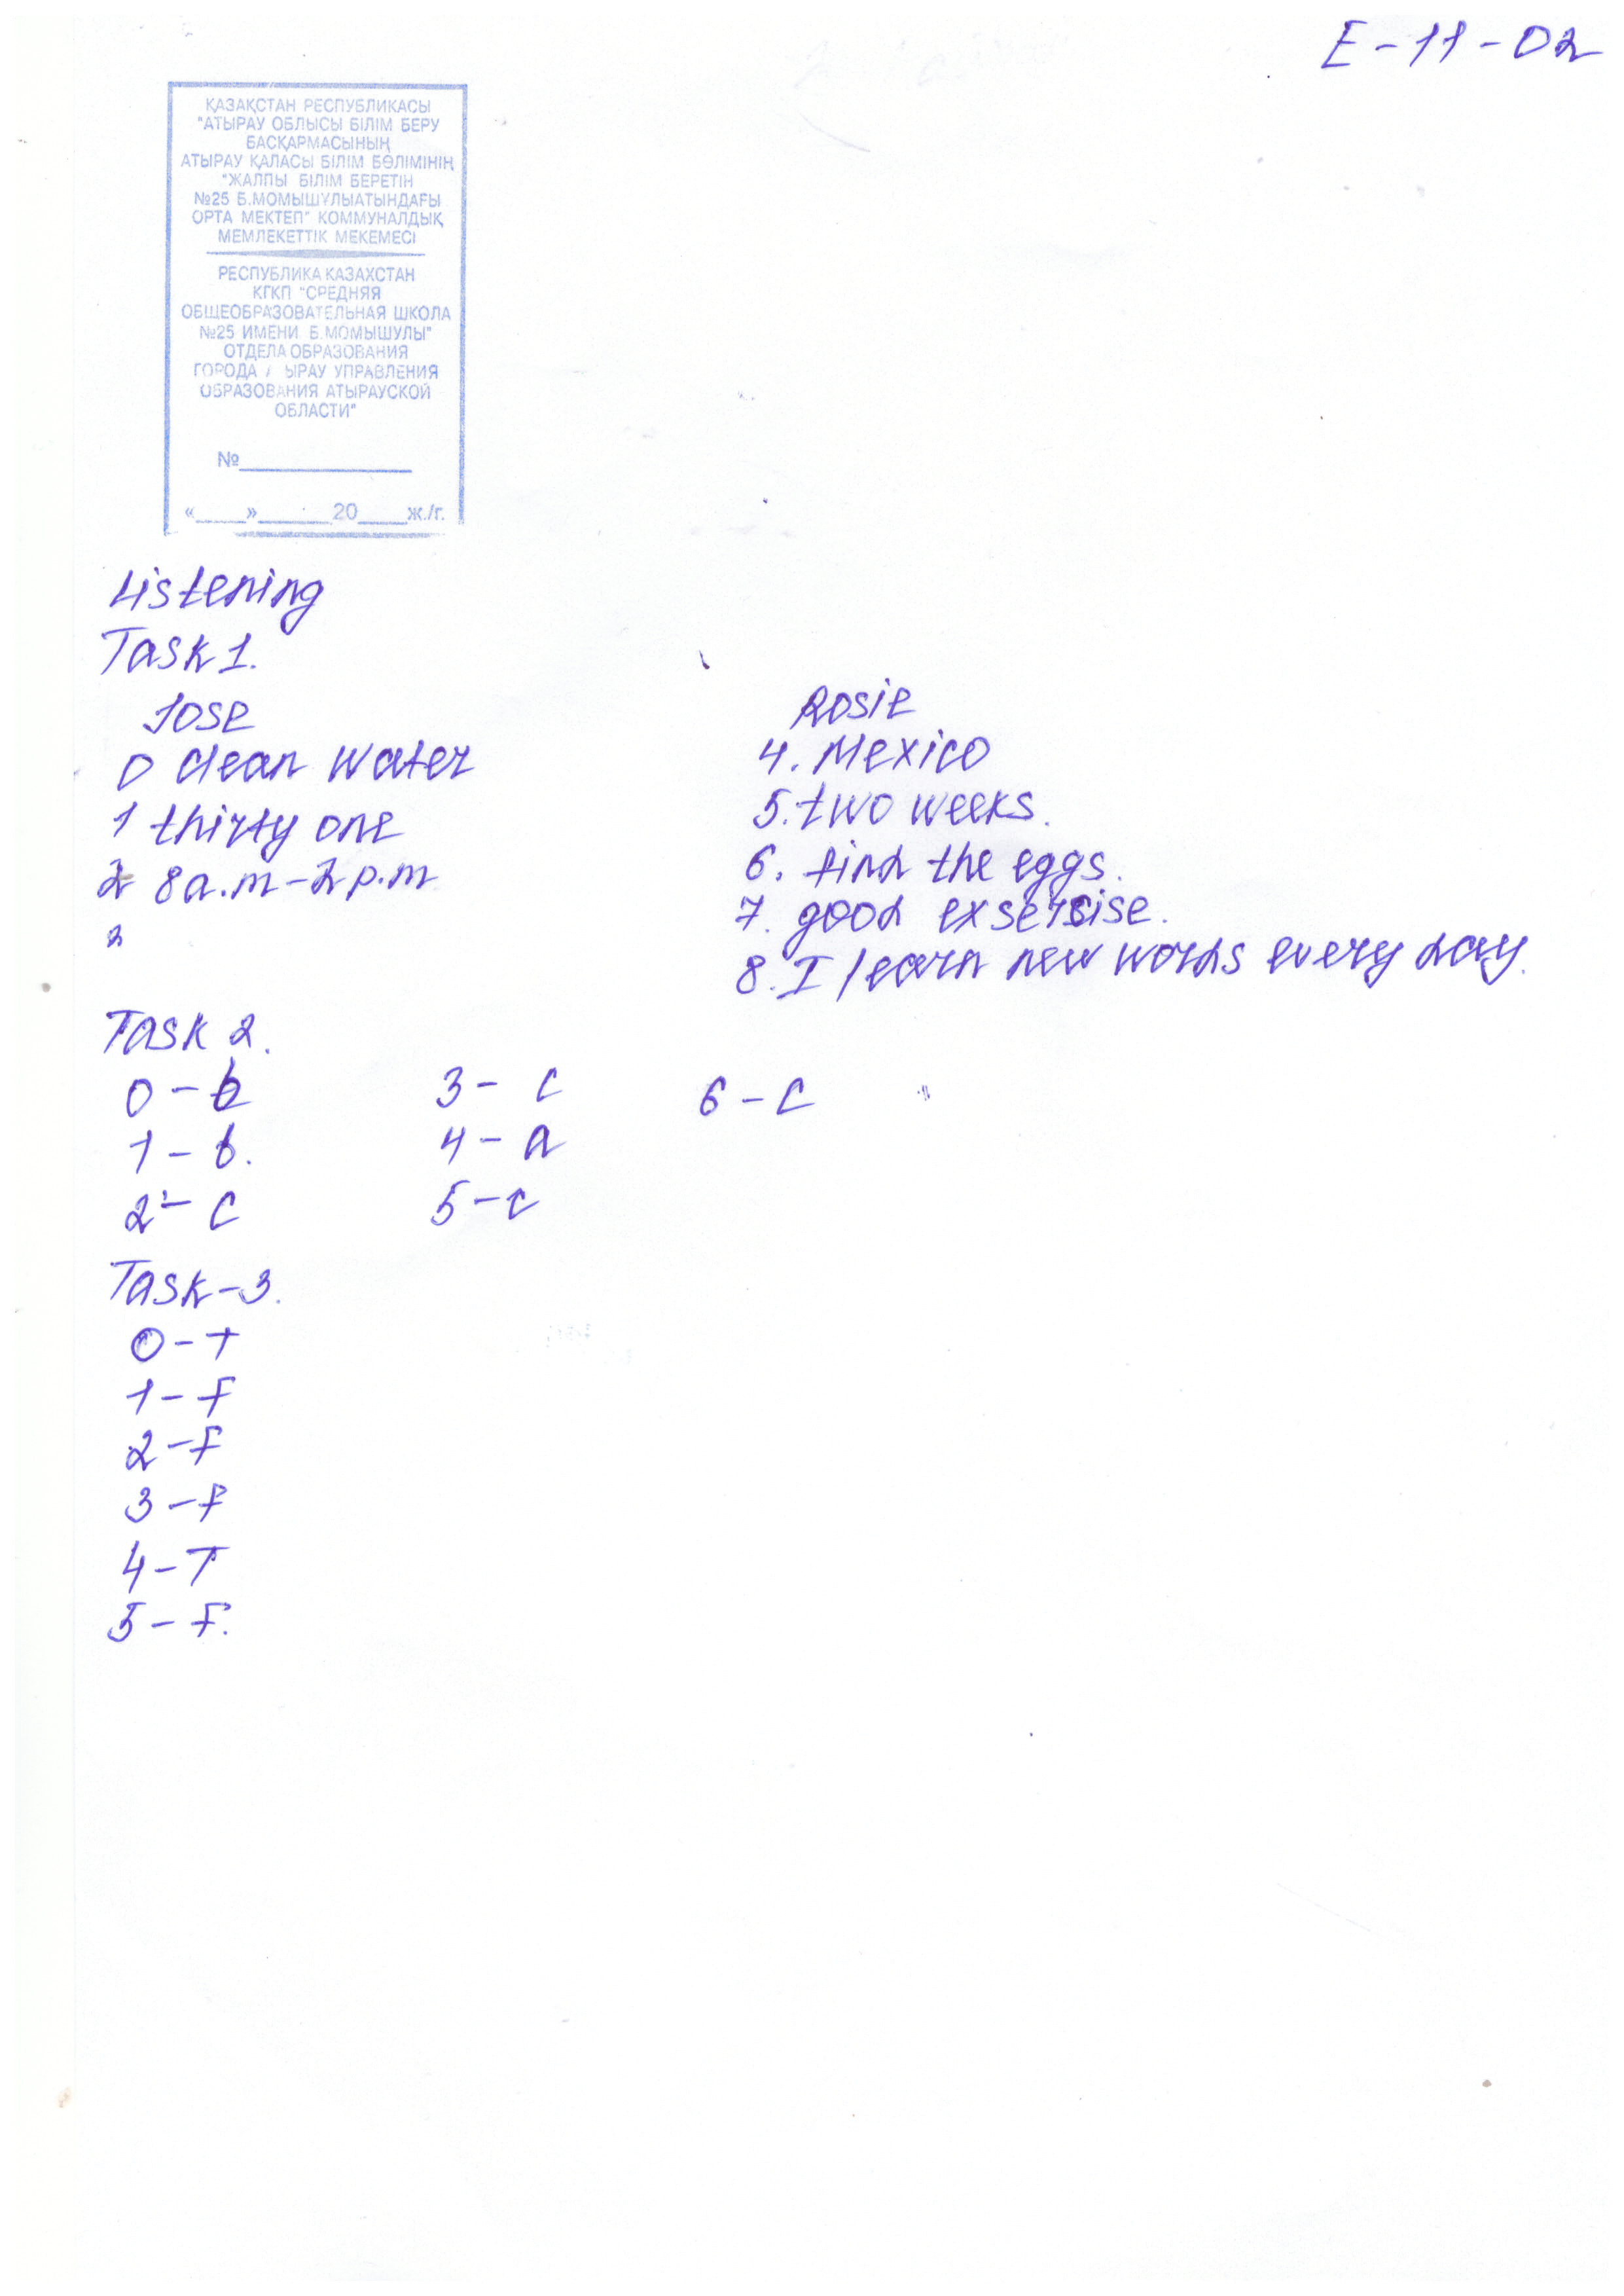 E-11-02
ҚАЗАҚСТАН РЕСПУБЛИКАСЫ
"АТЫРАУ ОБЛЫСЫ БІЛІМ БЕРУ
БАСҚАРМАСЫНЫҢ
АТЫРАУ ҚАЛАСЫ БІЛІМ БӨЛІМІНІҢ
"ЖАЛПЫ БІЛІМ БЕРЕТІН
№25 Б.МОМЫШҰЛЫАТЫНДАҒЫ
ОРТА МЕКТЕП" КОММУНАЛДЫҚ
МЕМЛЕКЕТТІК МЕКЕМЕСІ
РЕСПУБЛИКА КАЗАХСТАН
КГКП "СРЕДНЯЯ
ОБЩЕОБРАЗОВАТЕЛЬНАЯ ШКОЛА
№25 ИМЕНИ Б.МОМЫШУЛЫ"
ОТДЕЛА ОБРАЗОВАНИЯ
ГОРОДА ЫРАУ УПРАВЛЕНИЯ
ОБРАЗОВАНИЯ АТЫРАУСКОЙ
ОБЛАСТИ"
№
«____»______20____ж./г.
Listening
Task 1.
Jose
0 clean water
1 thirty one
2 8a.m-2p.m
3
Rosie
4. Mexico
5. two weeks.
6. find the eggs.
7. good exsersise.
8. I learn new words every day.
Task 2.
0 - b
1 - b.
2 - c
3 - c
4 - a
5 - c
6 - c
Task-3.
0 - T
1 - F
2 - F
3 - F
4 - T
5 - F.